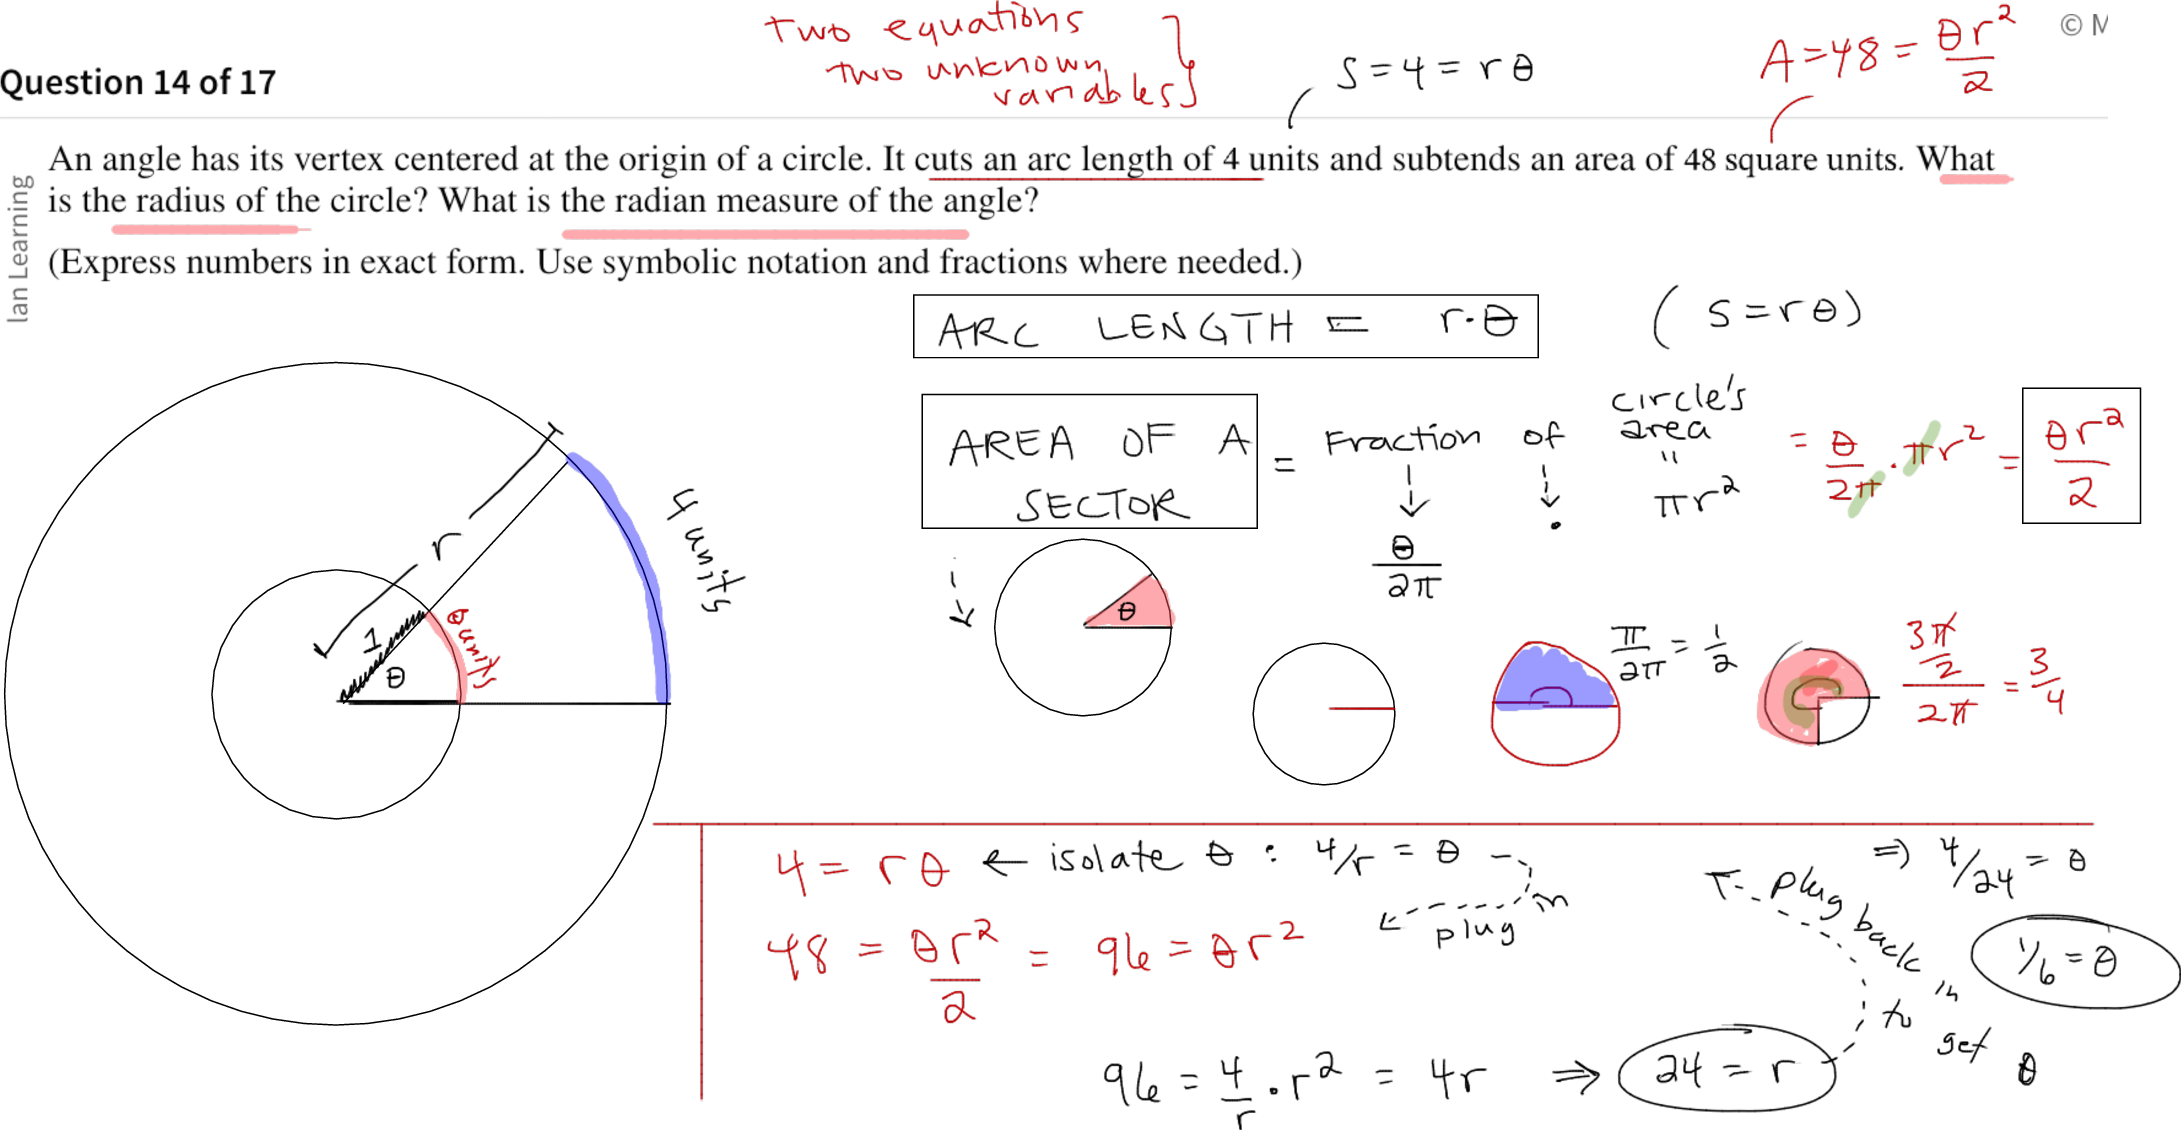 Two equations
Two unknown
variables
S = 4 = rθ
A = 48 = θr²/2
© M
Question 14 of 17
An angle has its vertex centered at the origin of a circle. It cuts an arc length of 4 units and subtends an area of 48 square units. What
is the radius of the circle? What is the radian measure of the angle?
(Express numbers in exact form. Use symbolic notation and fractions where needed.)
lan Learning
ARC LENGTH = r·θ
(S = rθ)
AREA OF A
SECTOR
= Fraction of circle's area
θ/2π · πr²
= θ/2π · πr² = θr²/2
r
4 units
1
θ
θ units
θ
π/2π = 1/2
3π/2 / 2π = 3/4
4 = rθ ← isolate θ : 4/r = θ
plug in
48 = θr²/2 = 96 = θr²
96 = 4/r · r² = 4r ⇒ 24 = r
plug back in
to get θ
⇒ 4/24 = θ
1/6 = θ